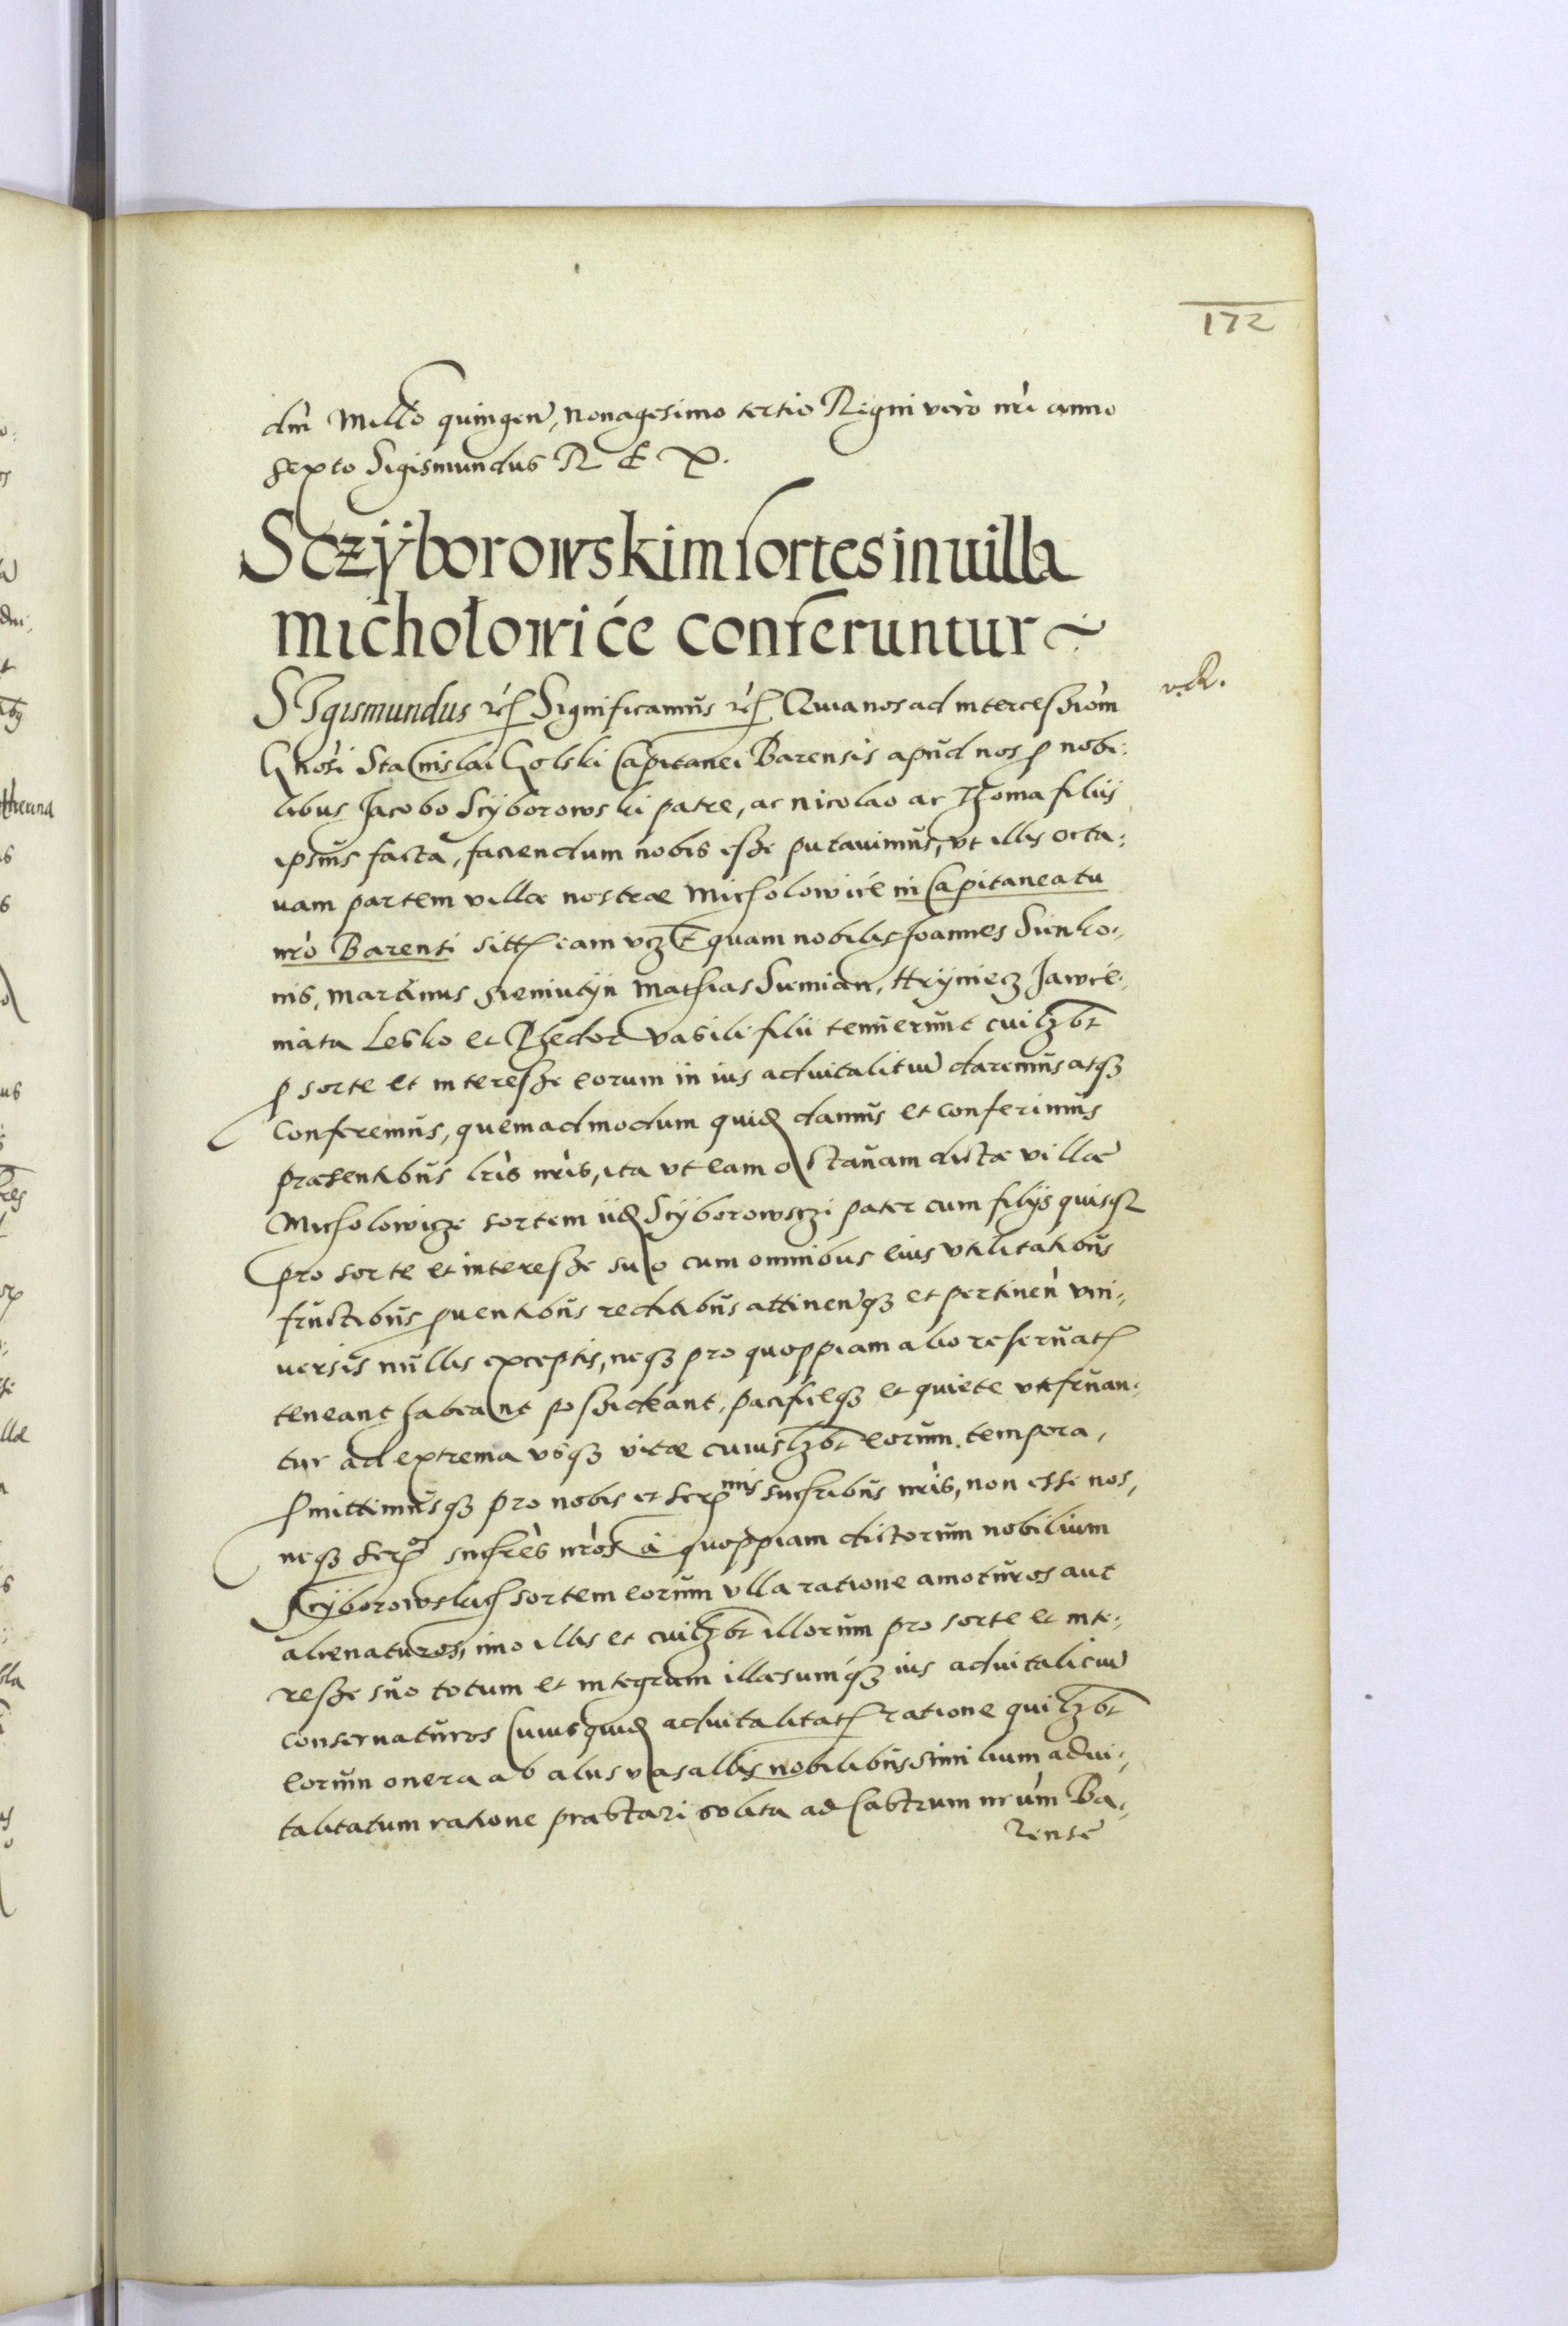 172
dni Millo quingen, nonagesimo tertio Regni vero nri anno
sexto Sigismundus R E X.
Sczÿborowskim sortes in uilla
michołowiće conferuntur
v.R.
SIgismundus etc Significamus etc Quia nos ad intercessiom
Gnosi Stanislai Golski Capitanei Barensis apud nos p nobi:
libus Jacobo Scyborowski patre, ac Nicolao ac Thoma filiis
ipsius facta, faciendum nobis esse putauimus, vt illis octa:
uam partem villæ nostræ Micholowice in Capitaneatu
nro Barensi sitt eam vcz quam nobiles Joannes Sienko:
nis, Martinus Mathias Sumian, Hryniecz
Lesko et Fhedor Vasili filii tenuerunt cuilzbt
p sorte et interesse eorum in ius aduitalitiu daremus atqz
conferemus, quemadmodum quid damus et conferimus
præsentibus lris nris, ita vt eam octauam dictæ villæ
Micholowicze sortem iid Scyborowsczi pater cum filÿs quisqz
pro sorte et interesse suo cum omnibus eius vtilitatibus
fructibus puentibus reditibus attinenqz et pertinen vni:
uersis nullis exceptis, neqz pro quoppiam alio reseruat
teneant habeant possideant, pacificeqz et quiete vtifruan:
tur ad extrema vsqz vitæ cuiuslzbt eorum tempora,
Pmittimusqz pro nobis et Sermis sucsribus nris, non esse nos,
neqz Sero sucsres nros à quoppiam dictorum nobilium
Scyborowskich sortem eorum vlla ratione amoturos aut
alienaturos, imo illis et cuilzbt illorum pro sorte et inte:
resse suo totum et integrum illæsumqz ius aduitalitiu
conseruaturos Cuiusquid aduitalitat ratione quilzbt
eorum onera ab aliis vasallis nobilibus similium adui:
talitatum ratione præstari solita ad Castrum nrum Ba:
rense